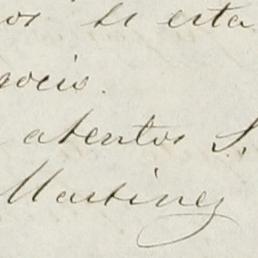 os se esta
gocio.
atentos S.
Martinez